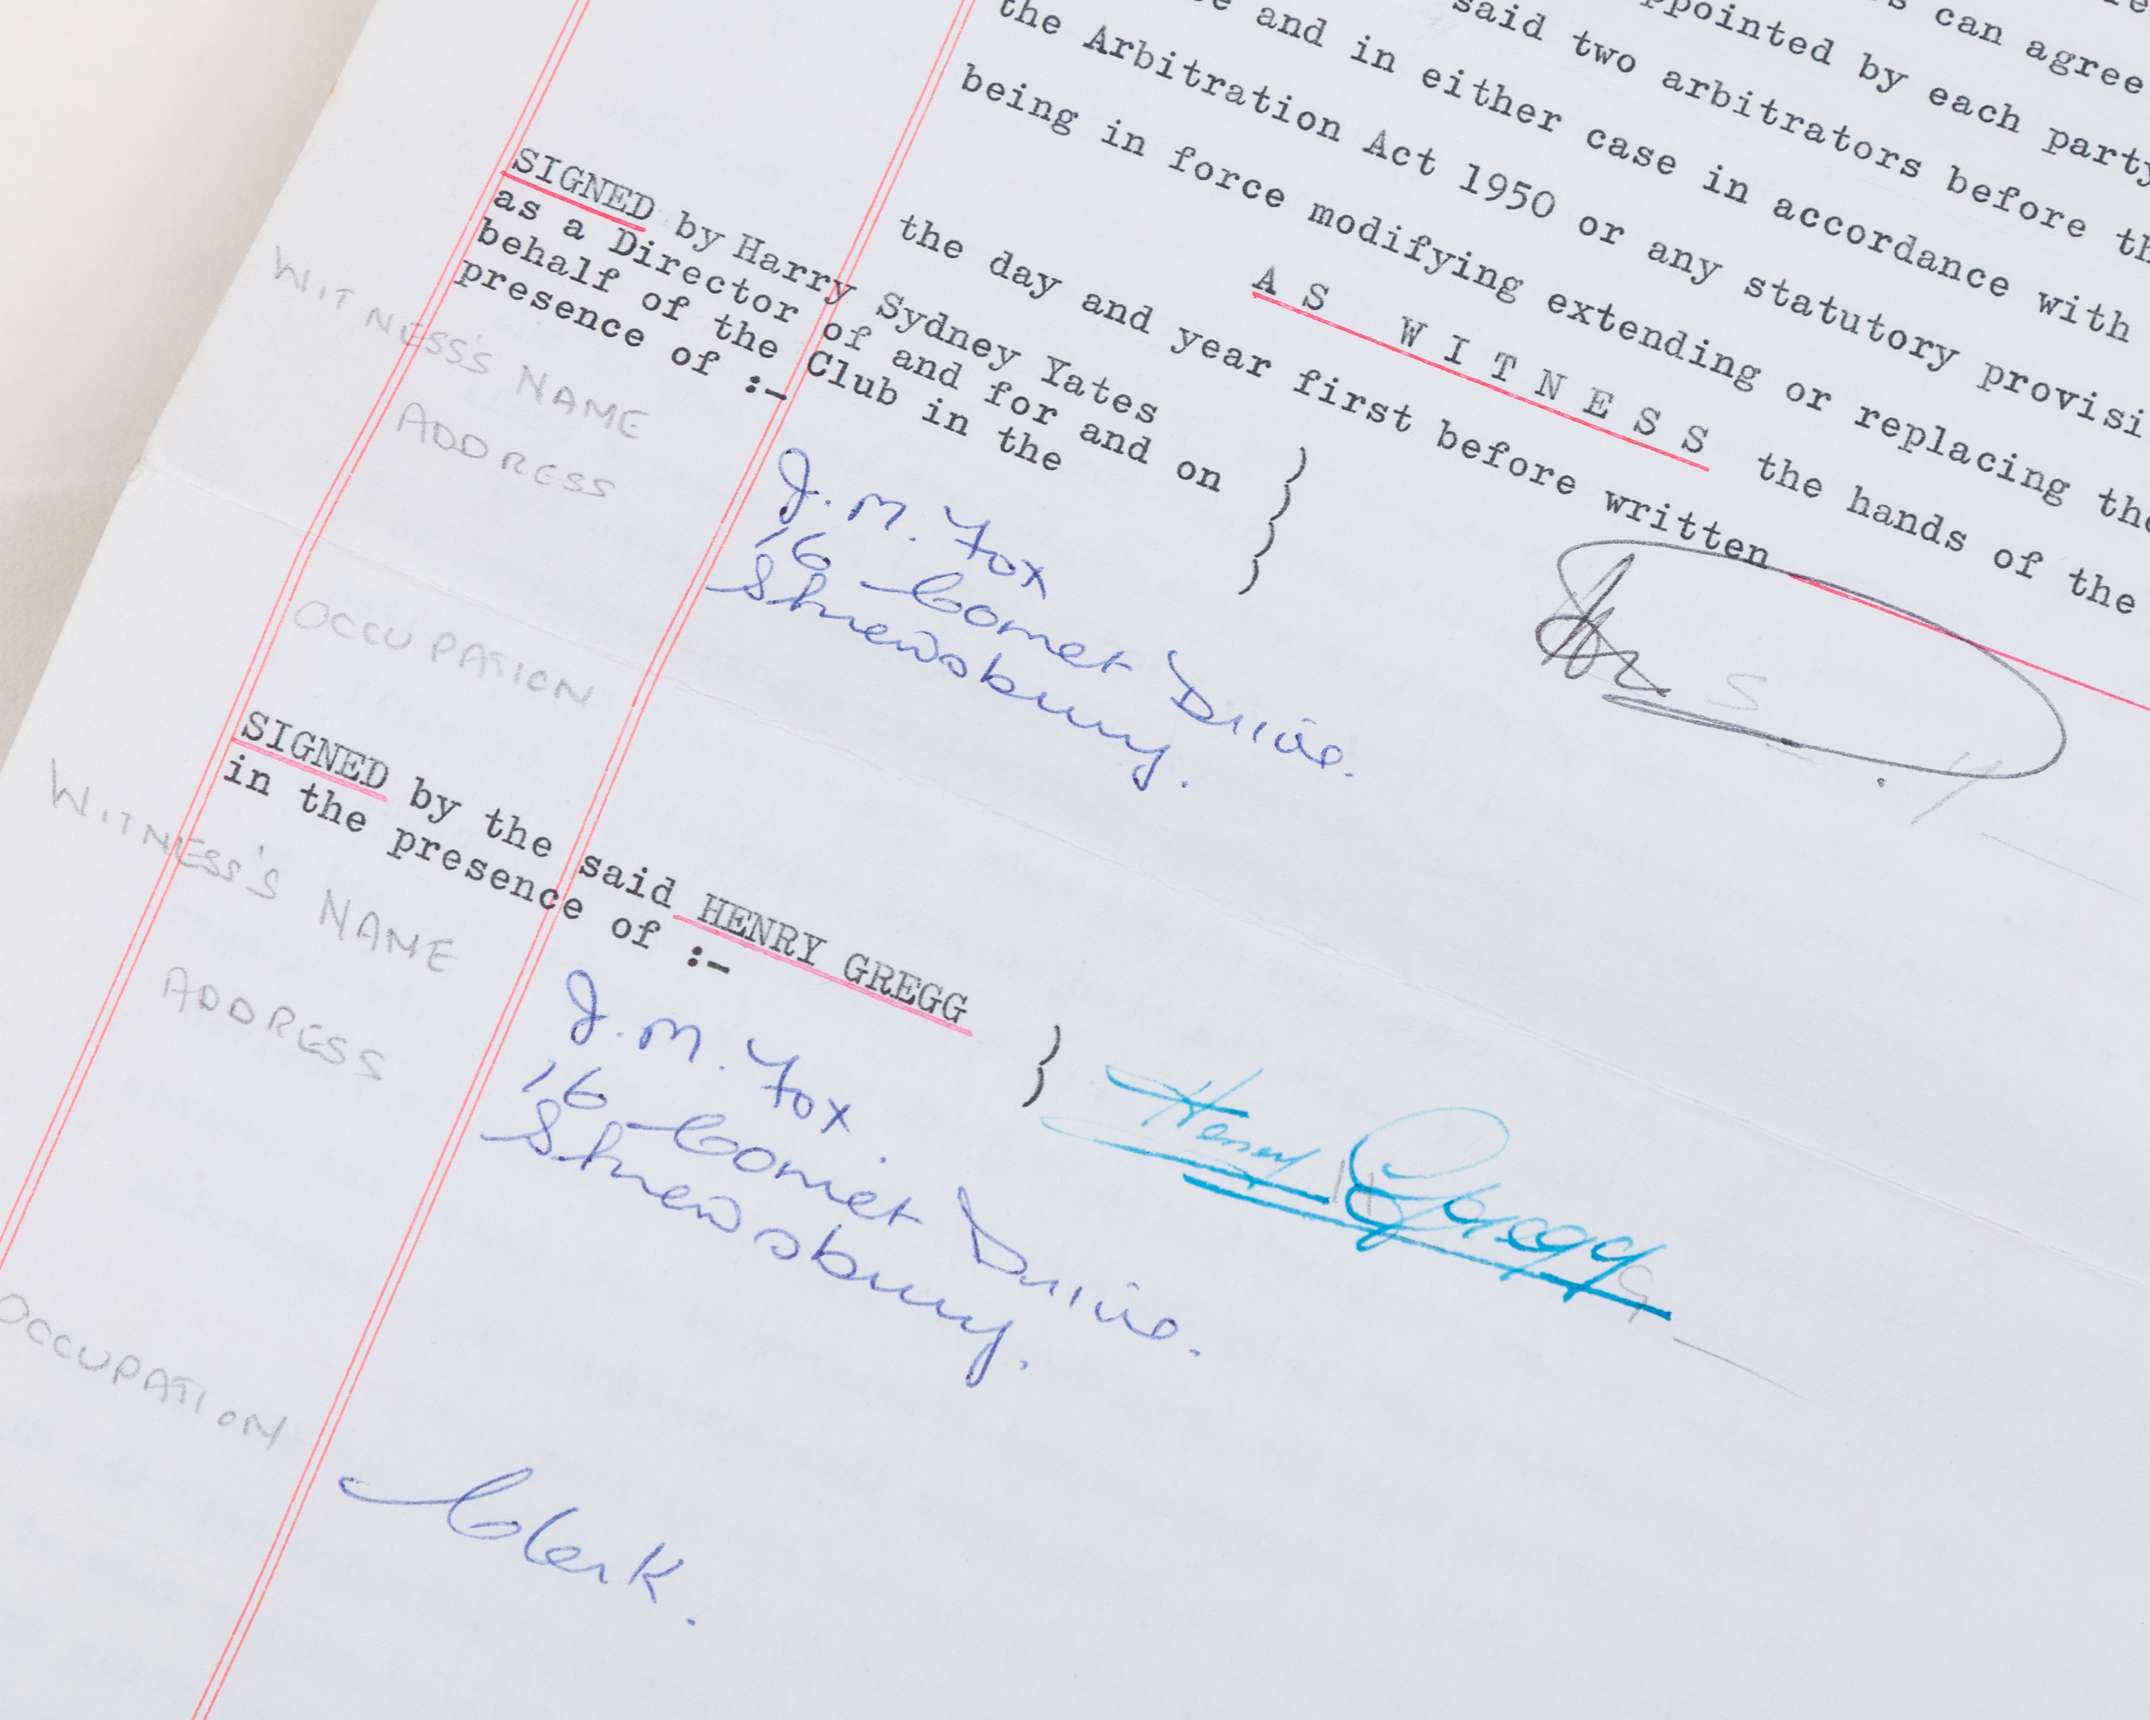 s can agree
ppointed by each party
said two arbitrators before th
e and in either case in accordance with
the Arbitration Act 1950 or any statutory provisi
being in force modifying extending or replacing the
A S W I T N E S S the hands of the
the day and year first before written
SIGNED by Harry Sydney Yates
as a Director of and for and on
behalf of the Club in the
presence of :-
WITNESS'S NAME
J. M. Fox
ADDRESS
16 Comet Drive.
Shrewsbury.
S
OCCUPATION
SIGNED by the said HENRY GREGG
in the presence of :-
WITNESS'S NAME
J. M. Fox
Henry Gregg
ADDRESS
16 Comet Drive.
Shrewsbury.
OCCUPATION
Clerk.